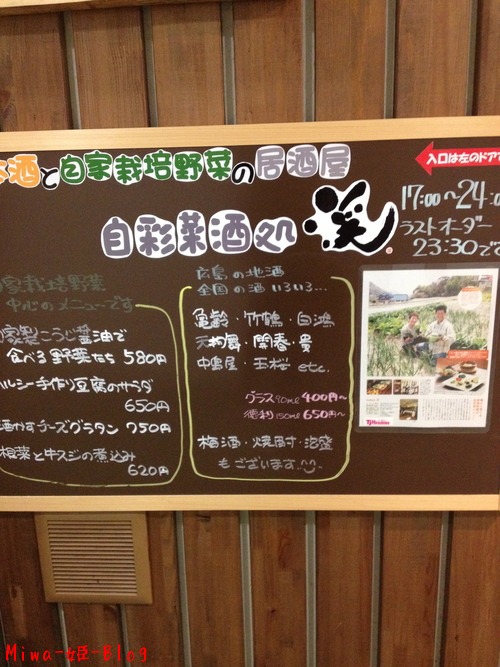 酒と自家栽培野菜の居酒屋
入口は左のドアで
自彩菜酒処 笑
17:00〜24:0
ラストオーダー
23:30です
家栽培野菜
中心のメニューです
家製こうじ醤油で
食べる野菜たち 580円
ルシー手作り豆腐のサラダ
650円
酒かすチーズグラタン 750円
根菜と牛スジの煮込み
620円
広島の地酒
全国の酒いろいろ…
亀齢・竹鶴・白鴻
天狗舞・開春・貴
中島屋・玉桜 etc.
グラス90ml 400円〜
徳利150ml 650円〜
梅酒・焼酎・泡盛
もございます
Miwa-姫-Blog